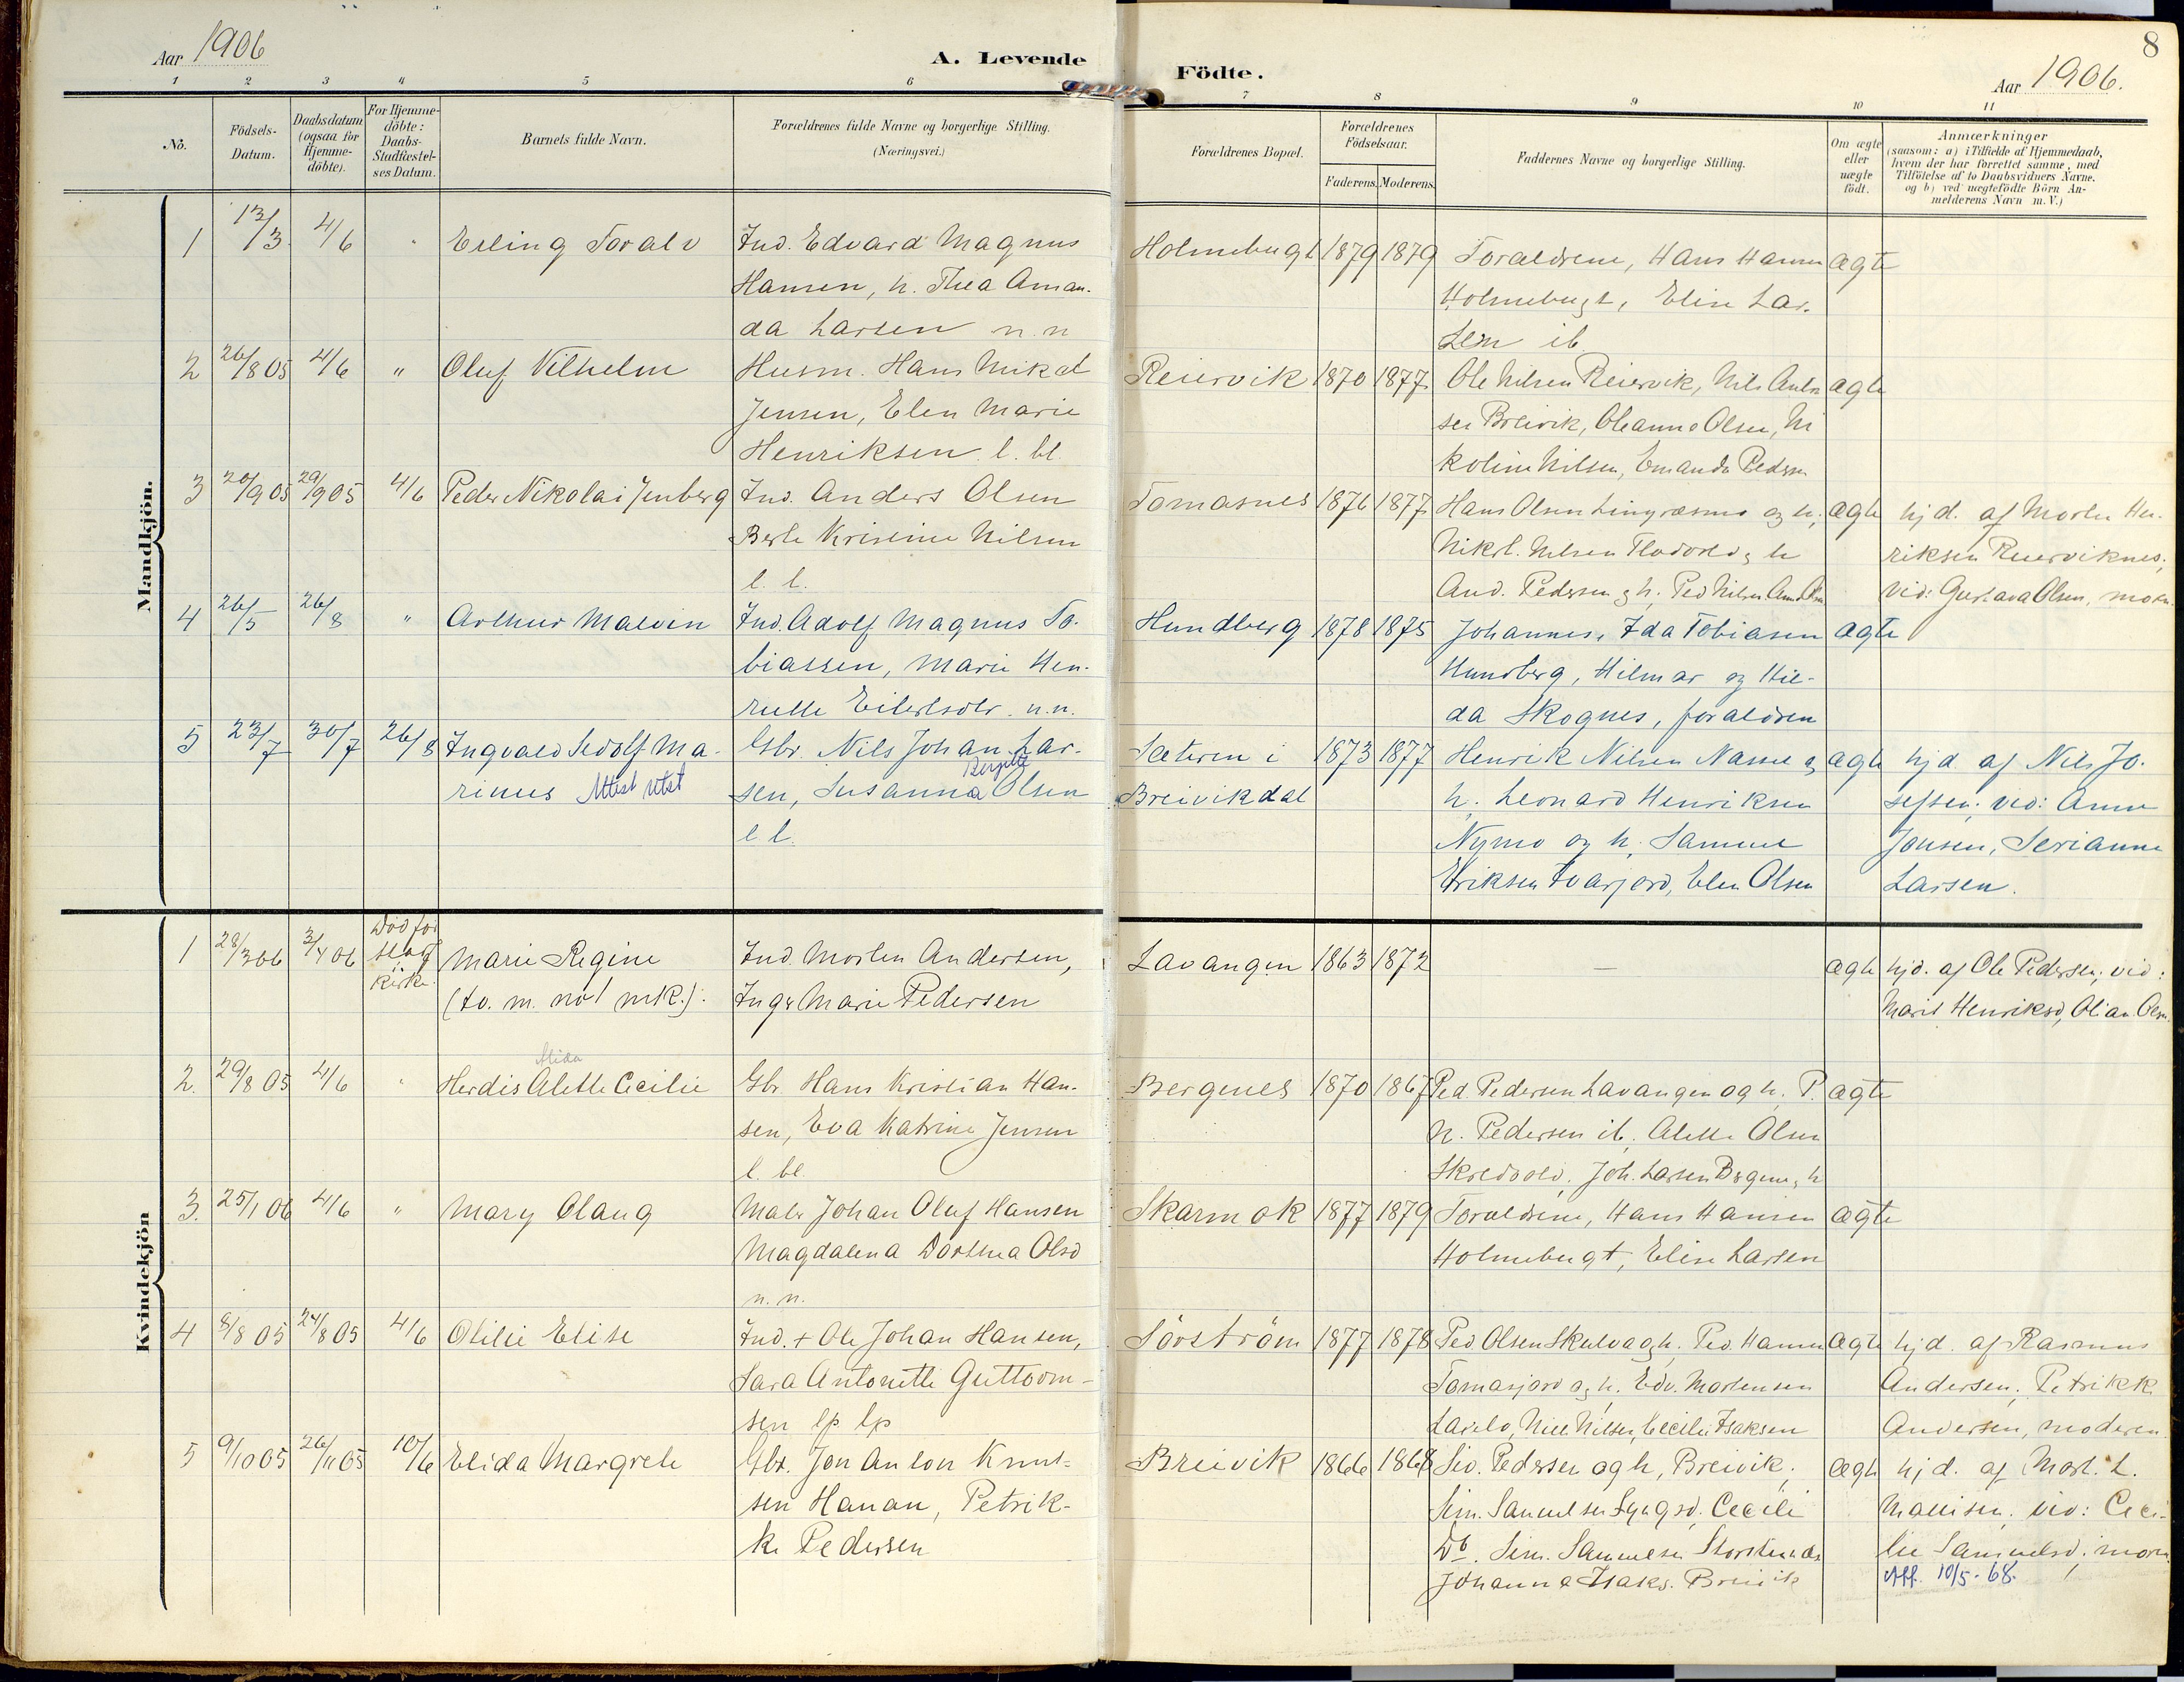 8
Aar 1906
A. Levende
Födte.
Aar 1906.
1 2 3 4 5 6 7 8 9 10 11
No.
Födsels-
Datum.
Daabsdatum
(ogsaa for
Hjemme-
döbte).
For Hjemme-
döbte:
Daabs-
Stadfæstel-
ses Datum.
Barnets fulde Navn.
Forældrenes fulde Navne og borgerlige Stilling.
(Næringsvei.)
Forældrenes Bopæl.
Forældrenes
Födselsaar.
Faderens. Moderens.
Faddernes Navne og borgerlige Stilling.
Om ægte
eller
uægte
födt.
Anmærkninger
(saasom: a) i Tilfælde af Hjemmedaab,
hvem der har forrettet samme, med
Tilföielse af to Daabsvidners Navne.
og b) ved uægtefödte Börn An-
melderens Navn m.V.)
Mandkjön.
1 13/3 4/6 " Erling Toralv Ind. Edvard Magnus Holmebugt 1879 1879 Forældrene, Hans Hansen ægte
Hansen, h. Thea Aman- Holmebugt, Elise Lar-
da Larsen n.n sen ib
2 26/8 05 4/6 " Oluf Vilhelm Husm. Hans Mikal Reiervik 1870 1877 Ole Nilsen Reiervik, Nils Ante ægte
Jensen, Elen Marie sen Breivik, Oleanna Olsen, Ni
Henriksen l. bl. koline Nilsen, Emanda Peders
3 20/9 05 29/9 05 4/6 Peder Nikolai Jenberg Ind. Anders Olsen Tomasnes 1876 1877 Hans Olsen og h. ægte hjd. af Morten Hen-
Berte Kristine Nilsen Nikl. Nilsen riksen Reierviknes,
l. l. And. Pedersen og h. Ped Nilsen vid: Gustava Olsen, moren
4 26/5 26/8 " Arthur Malvin Ind. Adolf Magnus To- Hundberg 1878 1875 Johannes, Ida Tobiasen ægte
biassen, Marie Hen- Hundberg, Hilmar og Hil-
rette Eilertsdtr. n.n. da Skognes, forældren
5 23/7 30/7 26/8 Ingvald Sedolf Ma- Gbr. Nils Johan Lar- Sæteren i 1873 1877 Henrik Nilsen og ægte hjd. af Nils Jo-
rinus Attest utst sen, Susanna Bergitte Olsen Breivikdal h. Leonard Henriksen sefsen; vid: Anne
l l. Nymo og h. Samuel Jonsen, Serianne
Eriksen Ivarjord, Elen Olsen Larsen.
Kvindekjön
1 28/3 06 3/4 06 Död för stadf i kirke. Marie Regine Ind. Morten Andersen, Lavangen 1863 1872 — ægte hjd. af Ole Pedersen; vid:
(tv. m. no 1 mk.). Inger Marie Pedersen Marit Henriksd, Olian. Olsen
2. 29/8 05 4/6 " Herdis Alette Cecilie Alida Gbr. Hans Kristian Han- Bergenes 1870 1867 Ped. Pedersen Lavangen og h. P. ægte
sen, Eva Katrine Jensen N. Pedersen ib. Alette Olsen
l. bl. Skredvold, Joh. Larsen
3. 25/1 06 4/6 " Mary Olaug Maler Johan Oluf Hansen Skarmok 1877 1879 Forældrene, Hans Hansen ægte
Magdalena Dorthea Olsd Holmebugt, Elise Larsen
n. n.
4 8/8 05 24/8 05 4/6 Otilie Elise Ind. + Ole Johan Hansen, Sörström 1877 1878 Ped Olsen Skulva og h. Ped. Hansen ægte hjd. af Rasmus
Sara Antonette Guttorm- Tomasjord og h. Edv. Mortensen Andersen, Petrikke
sen lp lp Nils Nilsen, Cecilie Isaksen Andersen, moderen
5 9/10 05 26/11 05 10/6 Elida Margrete Gbr. Jon Anton Knut- Breivik 1866 1868 Siv. Pedersen og h, Breivik; ægte hjd. af Mort. L.
sen Hanan, Petrik- Sim. Samuelsen Cecilie vid: Ceci-
ke Pedersen Do. Sim. Samuelsen Storstennes lie Samuelsd; moren
Johanna Isaks. Breivik Att. 10/5-68.